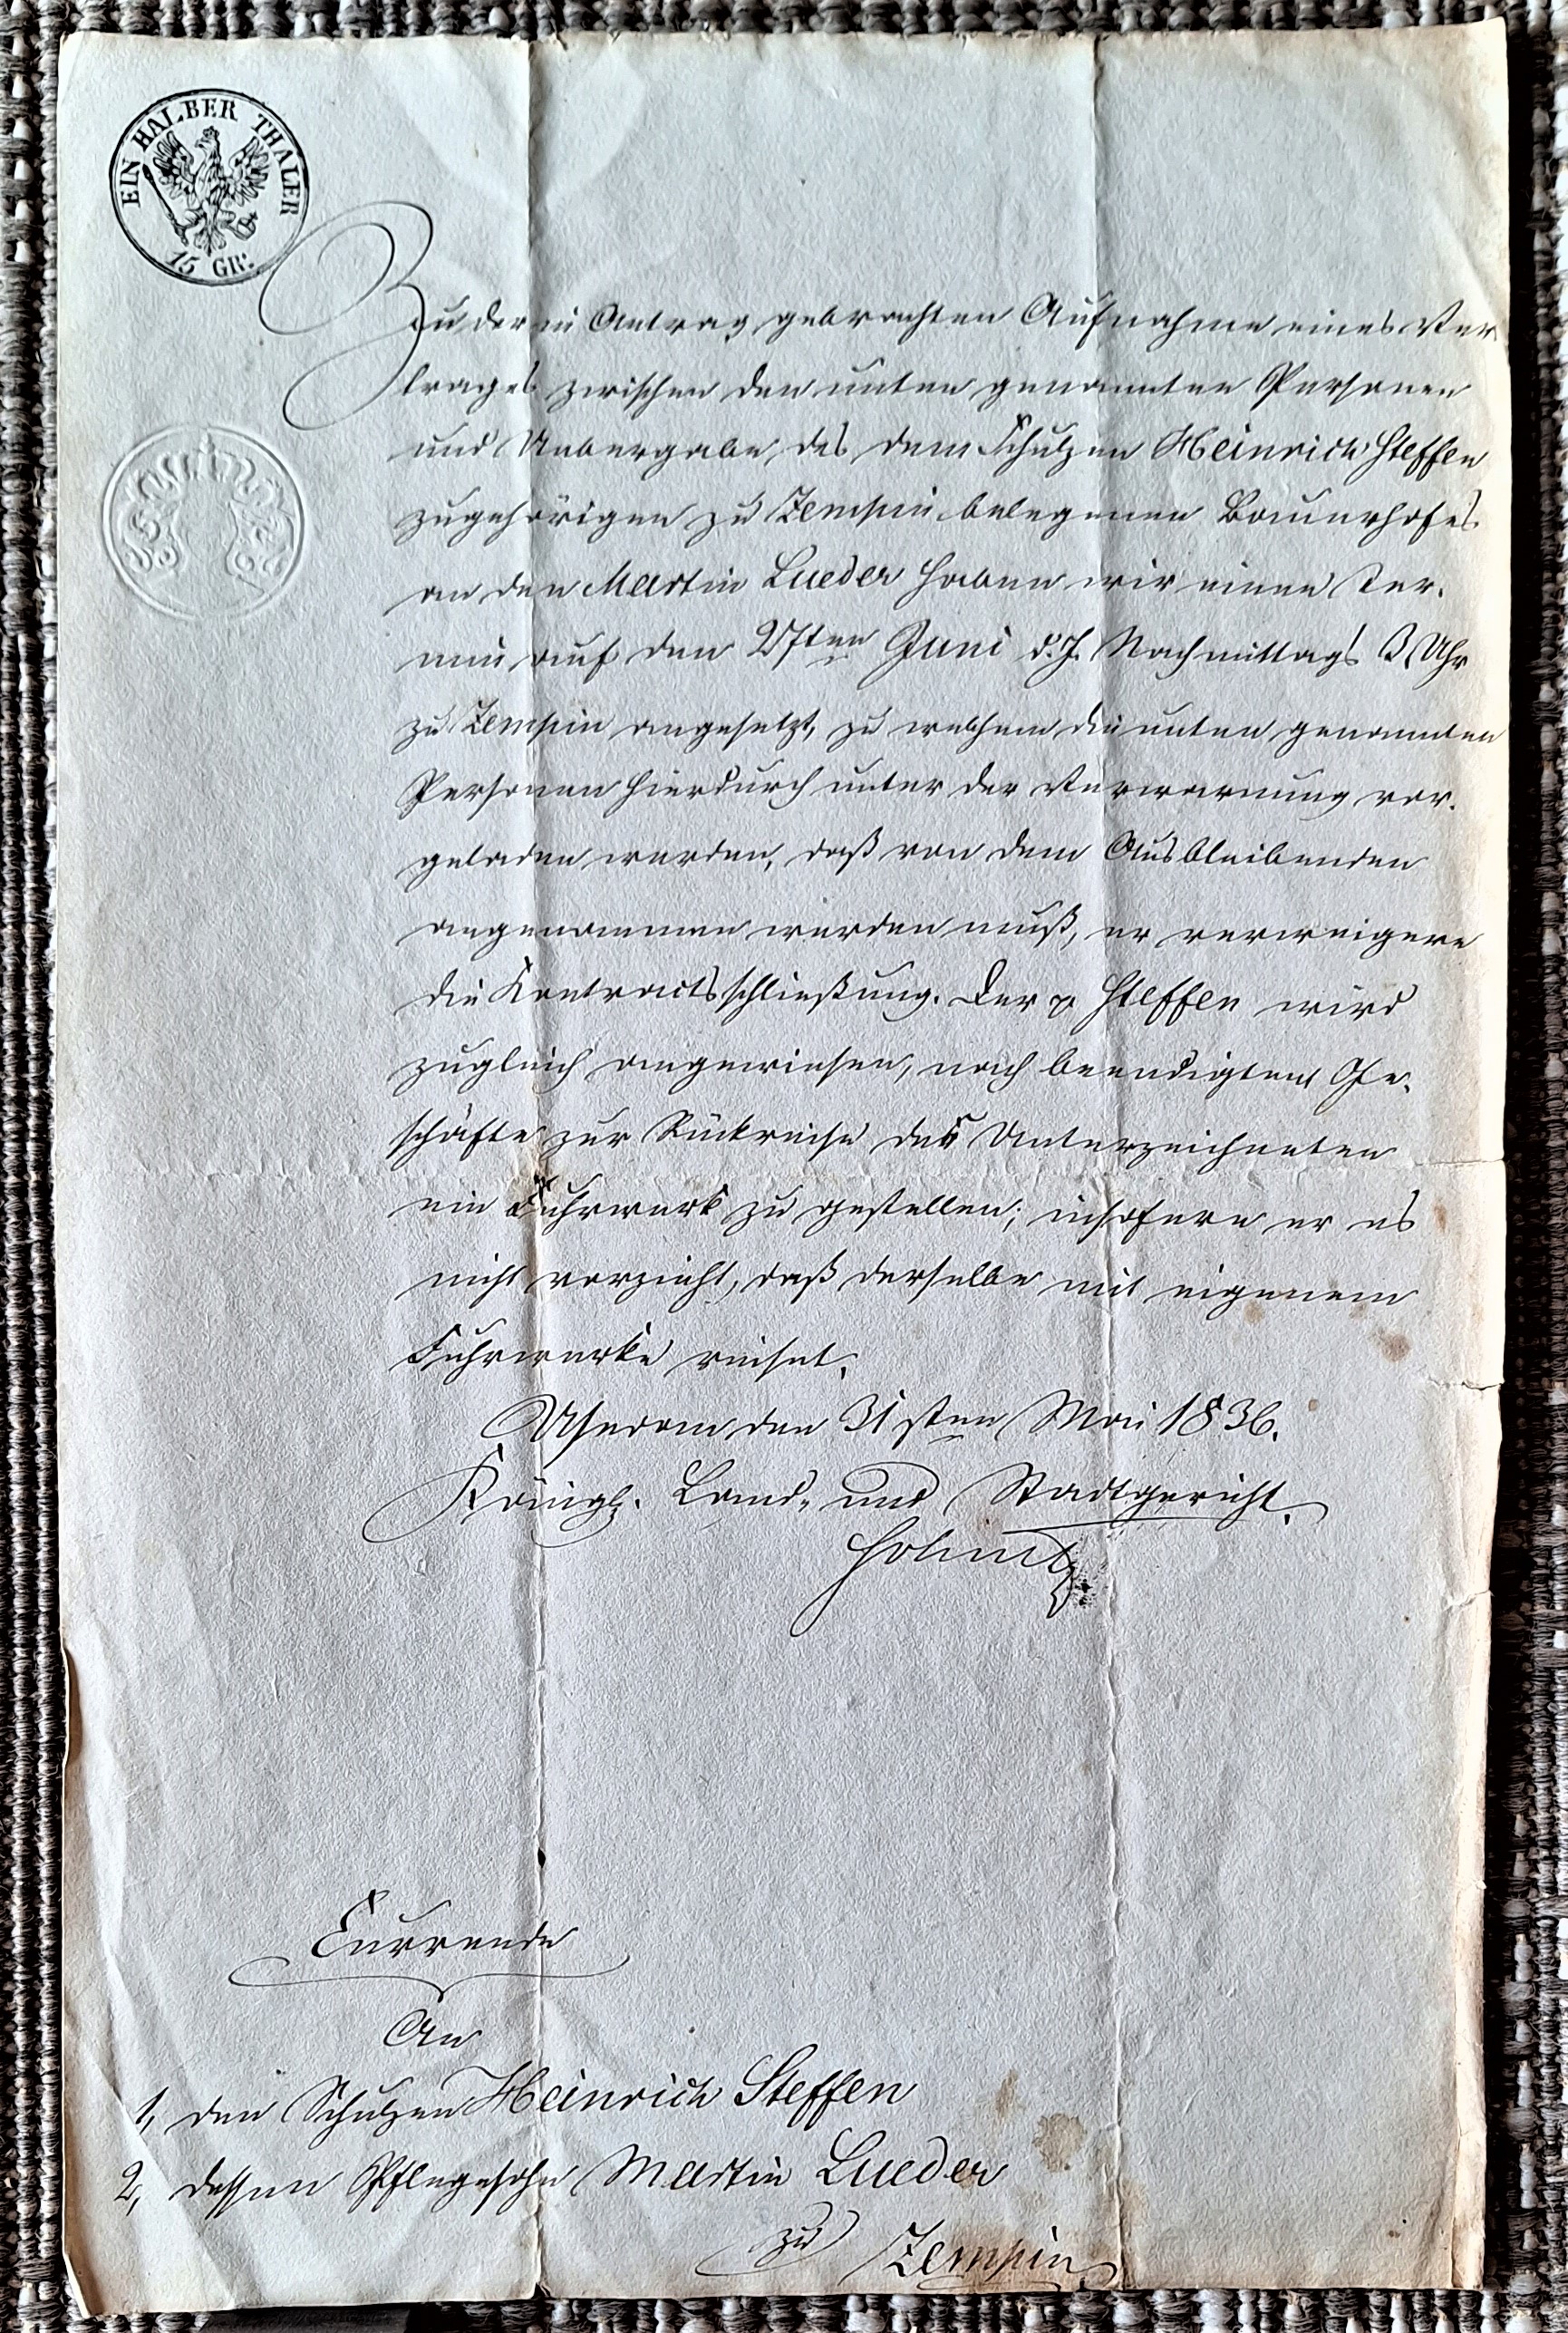 EIN HALBER THALER
15 GR:
Zu der in Antrag gebrachten Aufnahme eines Ver
trages zwischen den unten genannten Personen
und Uebergabe, des dem Schulzen Heinrich Steffen
zugehörigen zu Zempin belegenen Bauerhofes
an den Martin Lueder haben wir einen Ter-
min auf den 27ten Juni d. J. Nachmittags 3 Uhr
zu Zempin angesetzt, zu welchem die unten genannten
Personen hierdurch unter der Verwarnung vor-
geladen werden, daß von dem Ausbleibenden
angenommen werden muß, er verweigere
die Kontractsschließung. Der p Steffen wird
zugleich angewiesen, nach beendigtem Ge-
schäfte zur Rückreise des Unterzeichneten
ein Fuhrwerk zu gestellen; insofern er es
nicht vorzieht, daß derselbe mit eigenem
Fuhrwerke reiset.
Usedom den 31sten Mai 1836.
Königl. Land- und Stadtgericht.
Currende
An
1, den Schulzen Heinrich Steffen
2, dessen Pflegesohn Martin Lueder
zu Zempin